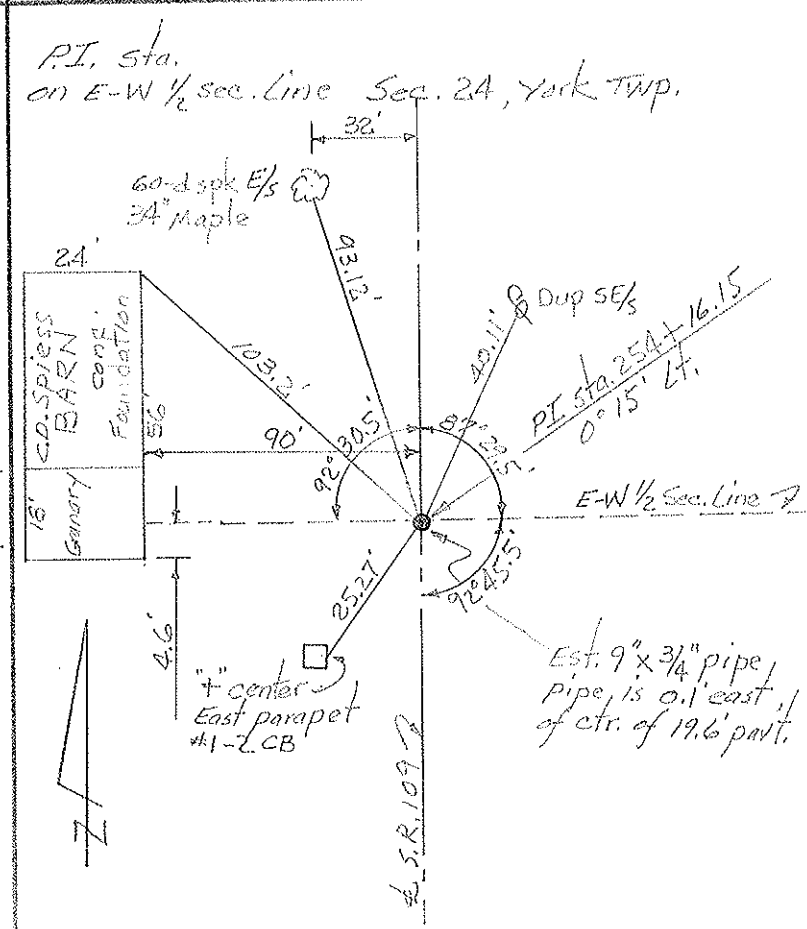 P.I. Sta.
on E-W 1/2 sec. Line Sec. 24, York Twp.
32'
60-d spk E/s
34" Maple
24'
93.12'
C.D. Spiess
BARN
conc.
Foundation
56'
103.2'
40.11'
Dup SE/s
PI sta. 254+16.15
0° 15' Lt.
90'
92° 30.5'
87° 29.5'
16'
Granary
E-W 1/2 Sec. Line
92° 45.5'
25.27'
4.6'
"+" center
East parapet
#1-2 CB
Est. 9" x 3/4" pipe,
pipe is 0.1' east,
of ctr. of 19.6' pavt.
S.R. 109